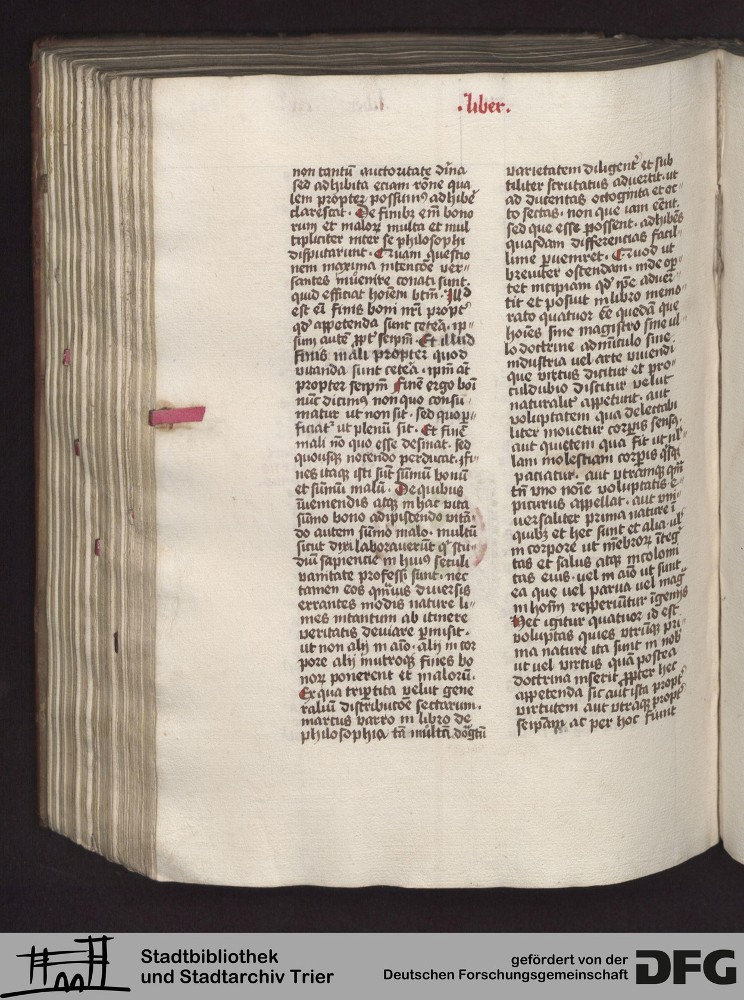 .liber.
non tantū auctoritate dīna
sed adhibita eciam rōne qua
lem propter possim⁹ adhibē
clarescat. De finibꝫ em̄ bono
rum et malorꝫ multa et mul
tipliciter inter se philosophi
disputarunt. Quam questio
nem maxima intencōe ver⸗
santes inuenire conati sunt.
quid efficiat hoīem btm̄. Illd
est em̄ finis boni nr̄i propt᷒
qd᷒ appetenda sunt cetera. ip⸗
sum autē ꝓpt᷒ seipm̄. Et illud
finis mali propter quod
vitanda sunt cetera. ipm̄ aūt
propter seipm̄. Finē ergo boni
nūc dicimꝰ non quo consu⸗
matur ut non sit. sed quo p̲⸗
ficiat᷒ ut plenū sit. Et finē
mali nō quo esse desinat. sed
quousqꝫ nocendo perducat. Fi⸗
nes itaqꝫ isti sūt sūmū bonū
et sūmū malū. De quibus
īueniendis atqꝫ in hac vita
sūmo bono adipiscendo vitā⸗
do autem sūmo malo. multū
sicut dixi laborauerūt qͥ stu⸗
diū sapiencie in huiꝰ seculi
vanitate professi sunt. nec
tamen eos qm̄uis diuersis
errantes modis nature li⸗
mes intantum ab itinere
veritatis deuiare p̲misit.
ut non alij in aīo. alij in cor
pore alij in utroqꝫ fines bo
norꝫ ponerent et malorū.
Ex qua tripertita velut gene
raliū distribucōe sectarum.
marcus varro in libro de
philosophia tā multā dogtū
varietatem diligent᷒ et sub
tiliter scrutatus aduertit. ut
ad ducentas octoginta et oc⸗
to sectas. non que iam eēnt.
sed que esse possent. adhibēs
quasdam differencias facil⸗
lime p̲uenret. Quod ut
breuiter ostendam. inde op̲⸗
tet incipiam qd᷒ ip̄e aduer⸗
tit et posuit in libro memo⸗
rato quatuor eē quedā que
hoīes sine magistro sine ul⸗
lo doctrine adminiculo sine
industria vel arte viuendi
que virtus dicitur et pro⸗
culdubio discitur velut
naturalit᷒ appetunt. aut
voluptatem qua delectabi
liter mouetur corp̲is sensꝫ.
aut quietem qua fit ut nl⸗
lam molestiam corp̲is qͥsqꝫ
paciatur. aut vtramqꝫ qm̄
tn̄ vno noīe voluptatis e⸗
picurus appellat. aut vni⸗
uersaliter prima nature ī
quibꝫ et hec sunt et alia. ul᷒
in corpore ut mēbrorꝫ īteg᷒
tas et salus atqꝫ incolomi
tas eius. vel in aīo ut sunt
ea que vel parua vel mag⸗
in hoīm repperiūtur īgenijs
Hec igitur quatuor id est
voluptas quies vtrūqꝫ pri⸗
ma nature ita sunt in nob᷒
ut vel virtus quā postea
doctrina inserit ꝓpter hec
appetenda sit aut ista propt᷒
virtutem aut vtraqꝫ propt᷒
seip̄a. ac per hoc fiunt
Stadtbibliothek
und Stadtarchiv Trier
gefördert von der
Deutschen Forschungsgemeinschaft
DFG